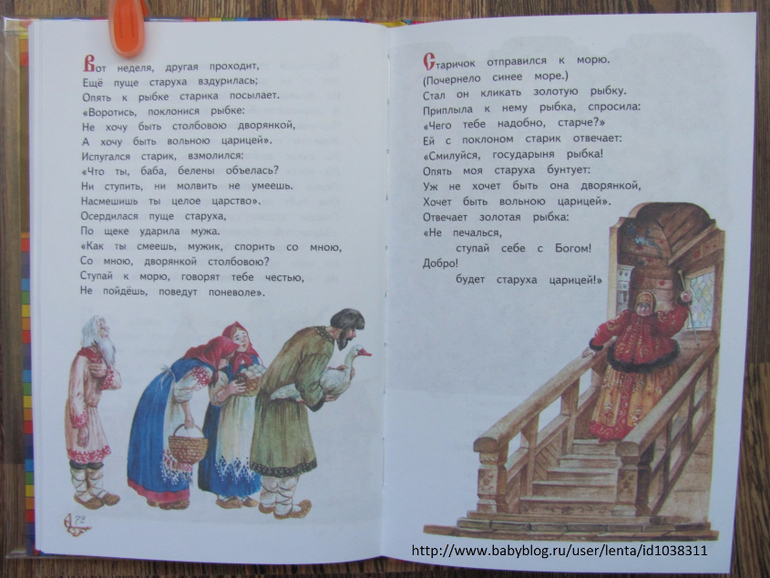 Вот неделя, другая проходит,
Ещё пуще старуха вздурилась;
Опять к рыбке старика посылает.
«Воротись, поклонися рыбке:
Не хочу быть столбовою дворянкой,
А хочу быть вольною царицей».
Испугался старик, взмолился:
«Что ты, баба, белены объелась?
Ни ступить, ни молвить не умеешь.
Насмешишь ты целое царство».
Осердилася пуще старуха,
По щеке ударила мужа.
«Как ты смеешь, мужик, спорить со мною,
Со мною, дворянкой столбовою?
Ступай к морю, говорят тебе честью,
Не пойдёшь, поведут поневоле».
72
Старичок отправился к морю.
(Почернело синее море.)
Стал он кликать золотую рыбку.
Приплыла к нему рыбка, спросила:
«Чего тебе надобно, старче?»
Ей с поклоном старик отвечает:
«Смилуйся, государыня рыбка!
Опять моя старуха бунтует:
Уж не хочет быть она дворянкой,
Хочет быть вольною царицей».
Отвечает золотая рыбка:
«Не печалься,
ступай себе с Богом!
Добро!
будет старуха царицей!»
http://www.babyblog.ru/user/lenta/id1038311